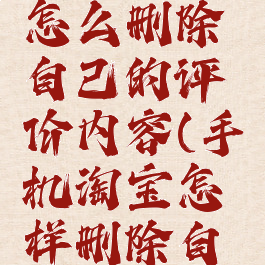 怎么删除
自己的评
价内容(手
机淘宝怎
样删除自